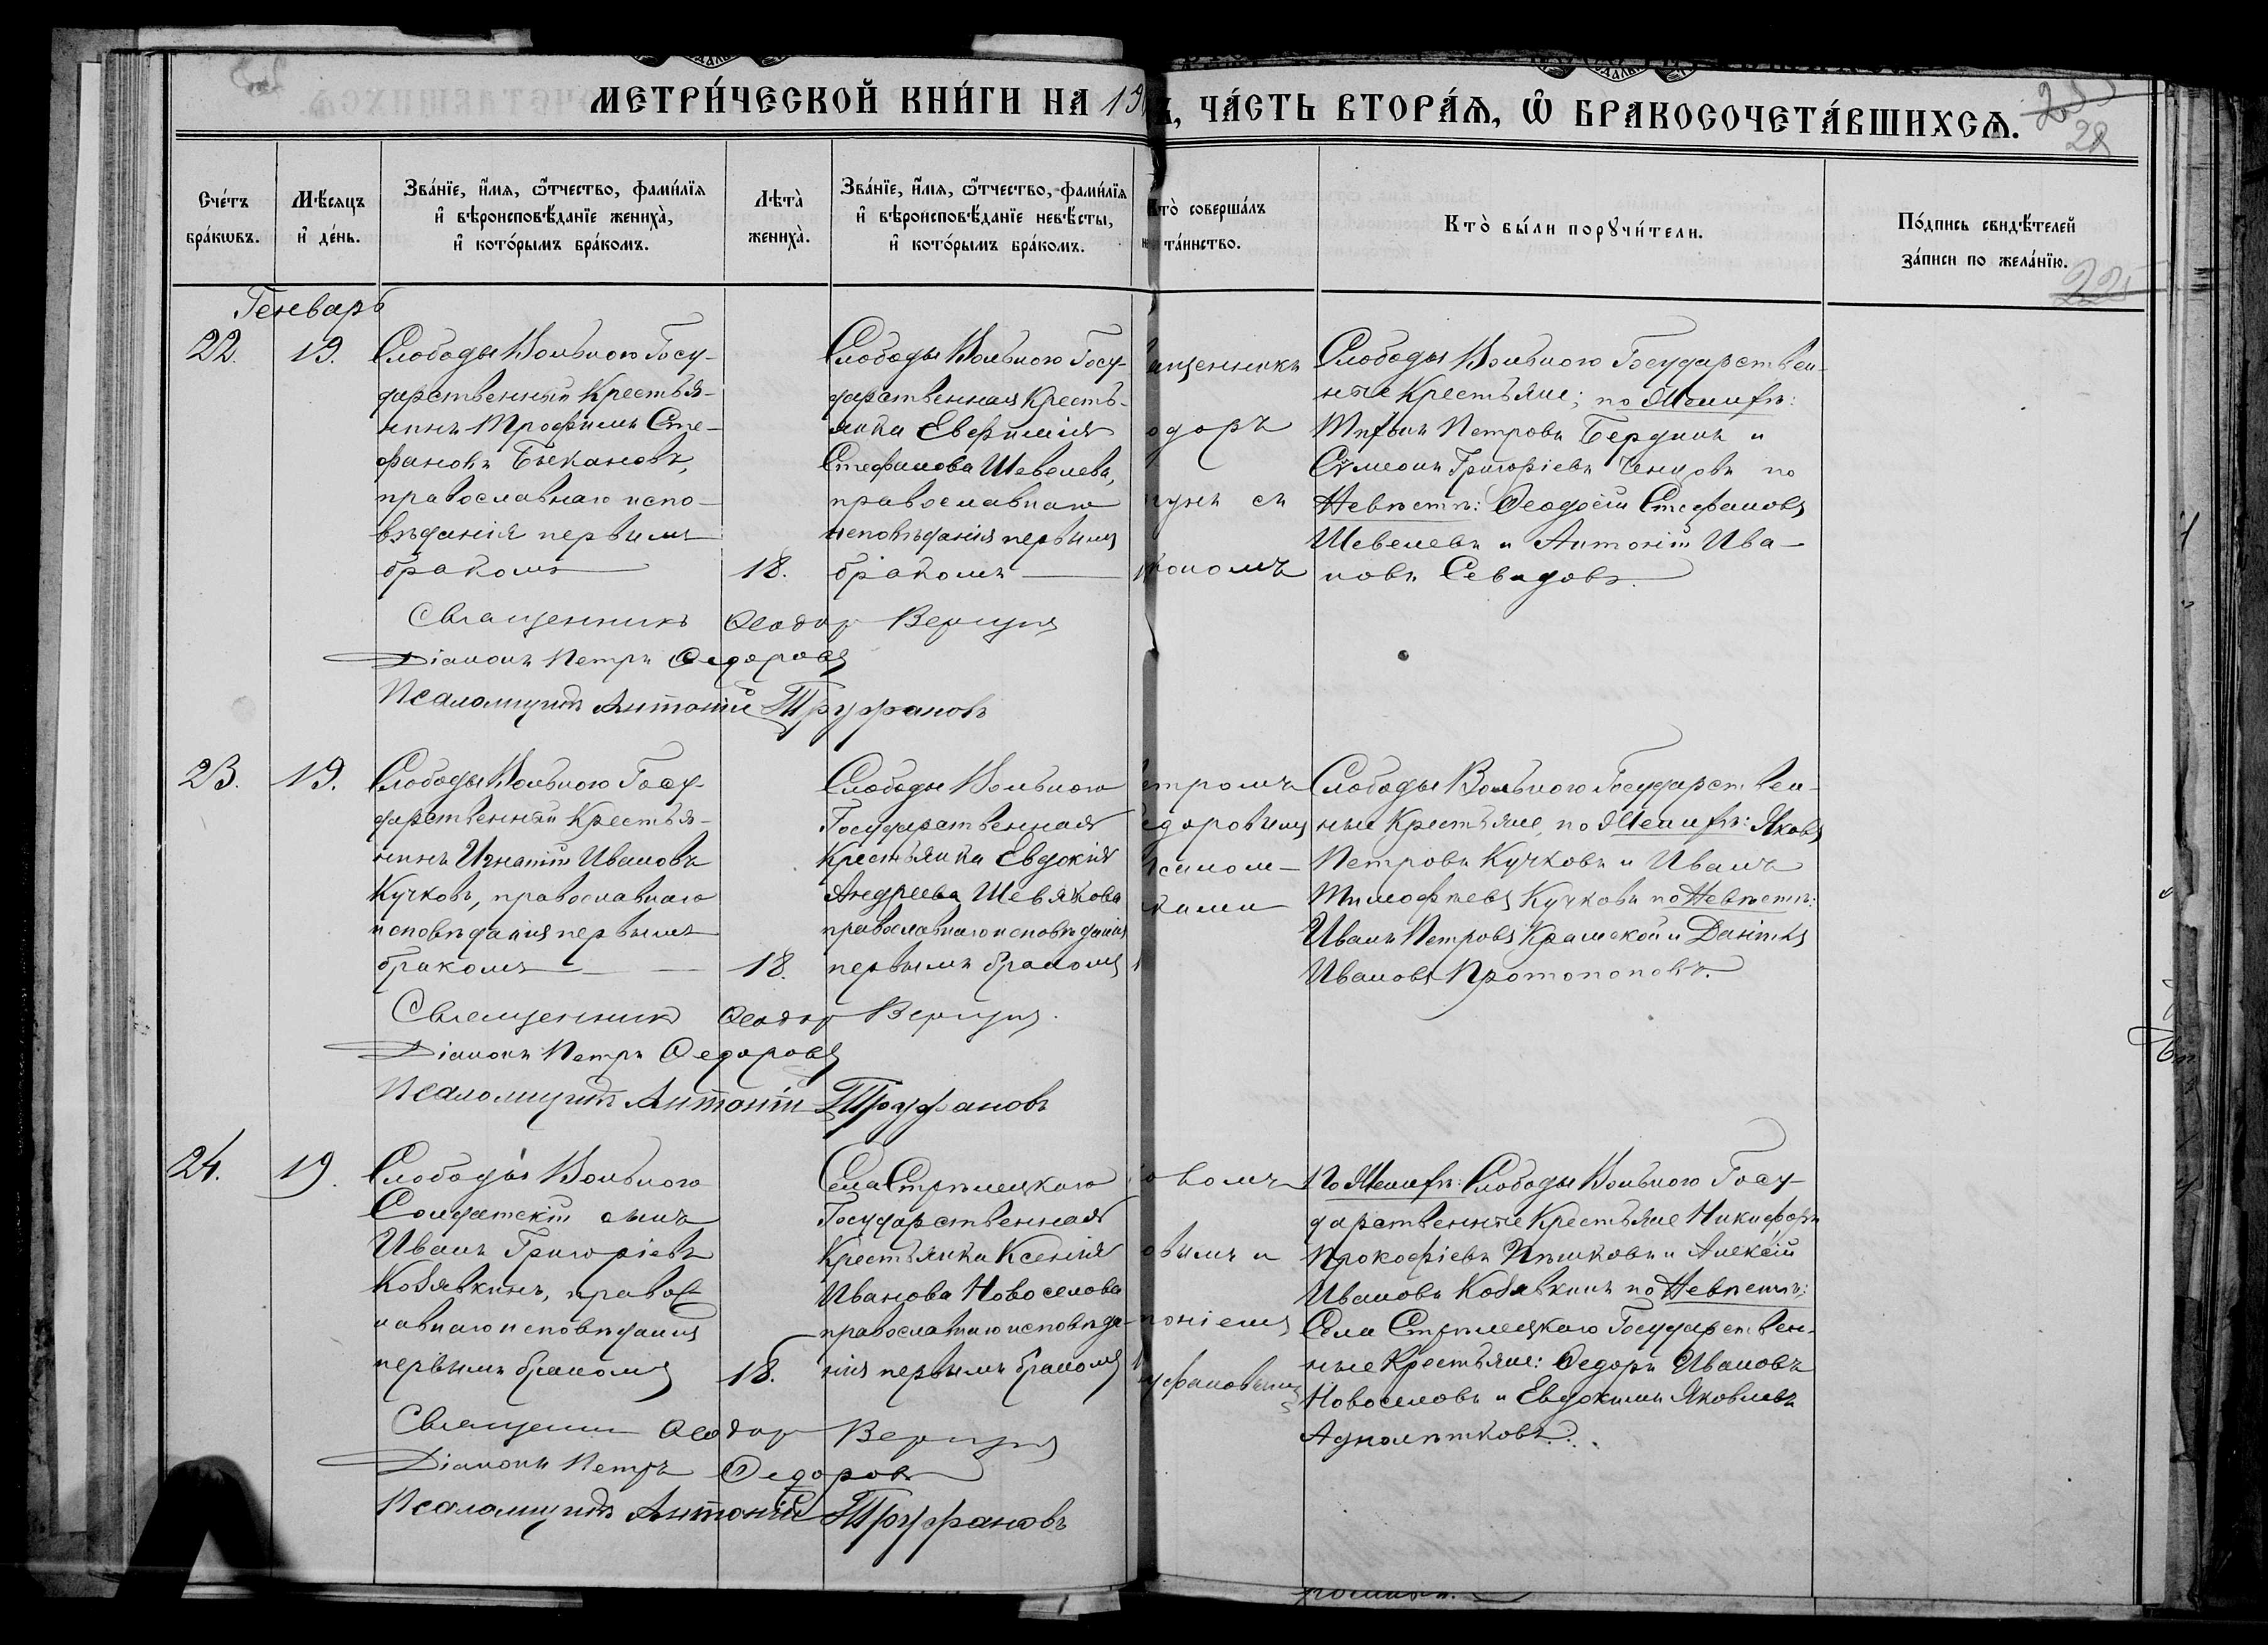 МЕТРИ́ЧЕСКОЙ КНИ́ГИ НА 19
, ЧА́СТЬ ВТОРА́Ѧ, Ѽ БРАКОСОЧЕТА́ВШИХСѦ.
28
Сче́тъ
бра́кѡвъ.
Мѣ́сяцъ
и҆ де́нь.
Зва́нїе, и҆́мя, ѻ҆́тчество, фами́лїя
и҆ вѣроисповѣ́данїе жениха̀,
и҆ кото́рымъ бра́комъ.
Лѣта̀
жениха̀.
Зва́нїе, и҆́мя, ѻ҆́тчество, фами́лїя
и҆ вѣроисповѣ́данїе невѣ́сты,
и҆ кото́рымъ бра́комъ.
Кто̀ соверша́лъ
та́инство.
Кто̀ бы́ли порꙋчи́тели.
По́дпись свидѣ́телей
за́писи по жела́нїю.
225
Генварь
22.
19.
Слободы Вольного Госу-
дарственный Крестья-
нинъ Трофимъ Сте-
фановъ Быкановъ,
православнаго испо-
вѣданія первымъ
бракомъ
18.
Слободы Вольного Госу-
дарственная Кресть-
янка Евфимія
Стефанова Шевелева,
православнаго
исповѣданія первымъ
бракомъ
ященникъ
одоръ
цунъ съ
кономъ
Слободы Вольного Государствен-
ные Крестьяне; по Женихѣ:
Титъ Петровъ Бердинъ и
Сѵмеонъ Григоріевъ Ченцовъ по
Невѣстѣ: Ѳеодосій Стефановъ
Шевелевъ и Антоній Ива-
новъ Севидовъ.
Священникъ Ѳеодор Верицунъ
Діаконъ Петръ Ѳедоровъ
Псаломщикъ Антоній Труфановъ
23.
19.
Слободы Вольного Госу-
дарственный Крестья-
нинъ Игнатій Ивановъ
Кучковъ, православнаго
исповѣданія первымъ
бракомъ
18.
Слободы Вольного
Государственная
Крестьянка Евдокія
Андреева Шевякова
православнаго исповѣданія
первымъ бракомъ
етромъ
едоровымъ
салом-
иками
Слободы Вольного Государствен-
ные Крестьяне, по Женихѣ: Яковъ
Петровъ Кучковъ и Иванъ
Тимофѣевъ Кучковъ по Невѣстѣ:
Иванъ Петровъ Крамской и Даніилъ
Ивановъ Протопоповъ.
Священникъ Ѳеодор Верицунъ.
Діаконъ Петръ Ѳедоровъ
Псаломщикъ Антоній Труфановъ
24.
19.
Слободы Вольного
Солдатскій сынъ
Иванъ Григоріевъ
Козявкинъ, правос-
лавнаго исповѣданія
первымъ бракомъ
18.
Села Стрѣлецкаго
Государственная
Крестьянка Ксенія
Иванова Новоселова
православнаго исповѣда-
нія первымъ бракомъ
овомъ
овымъ и
тоніемъ
уфановымъ
По Женихѣ: Слободы Вольного Госу-
дарственные Крестьяне Никифоръ
Прокофіевъ Пѣшковъ и Алексій
Ивановъ Козявкинъ по Невѣстѣ:
Села Стрѣлецкаго Государствен-
ные Крестьяне: Ѳедоръ Ивановъ
Новоселовъ и Евдокимъ Яковлевъ
Аднолѣтковъ.
Священни Ѳеодор Верицунъ
Діаконъ Петръ Ѳедоровъ
Псаломщикъ Антоній Труфановъ